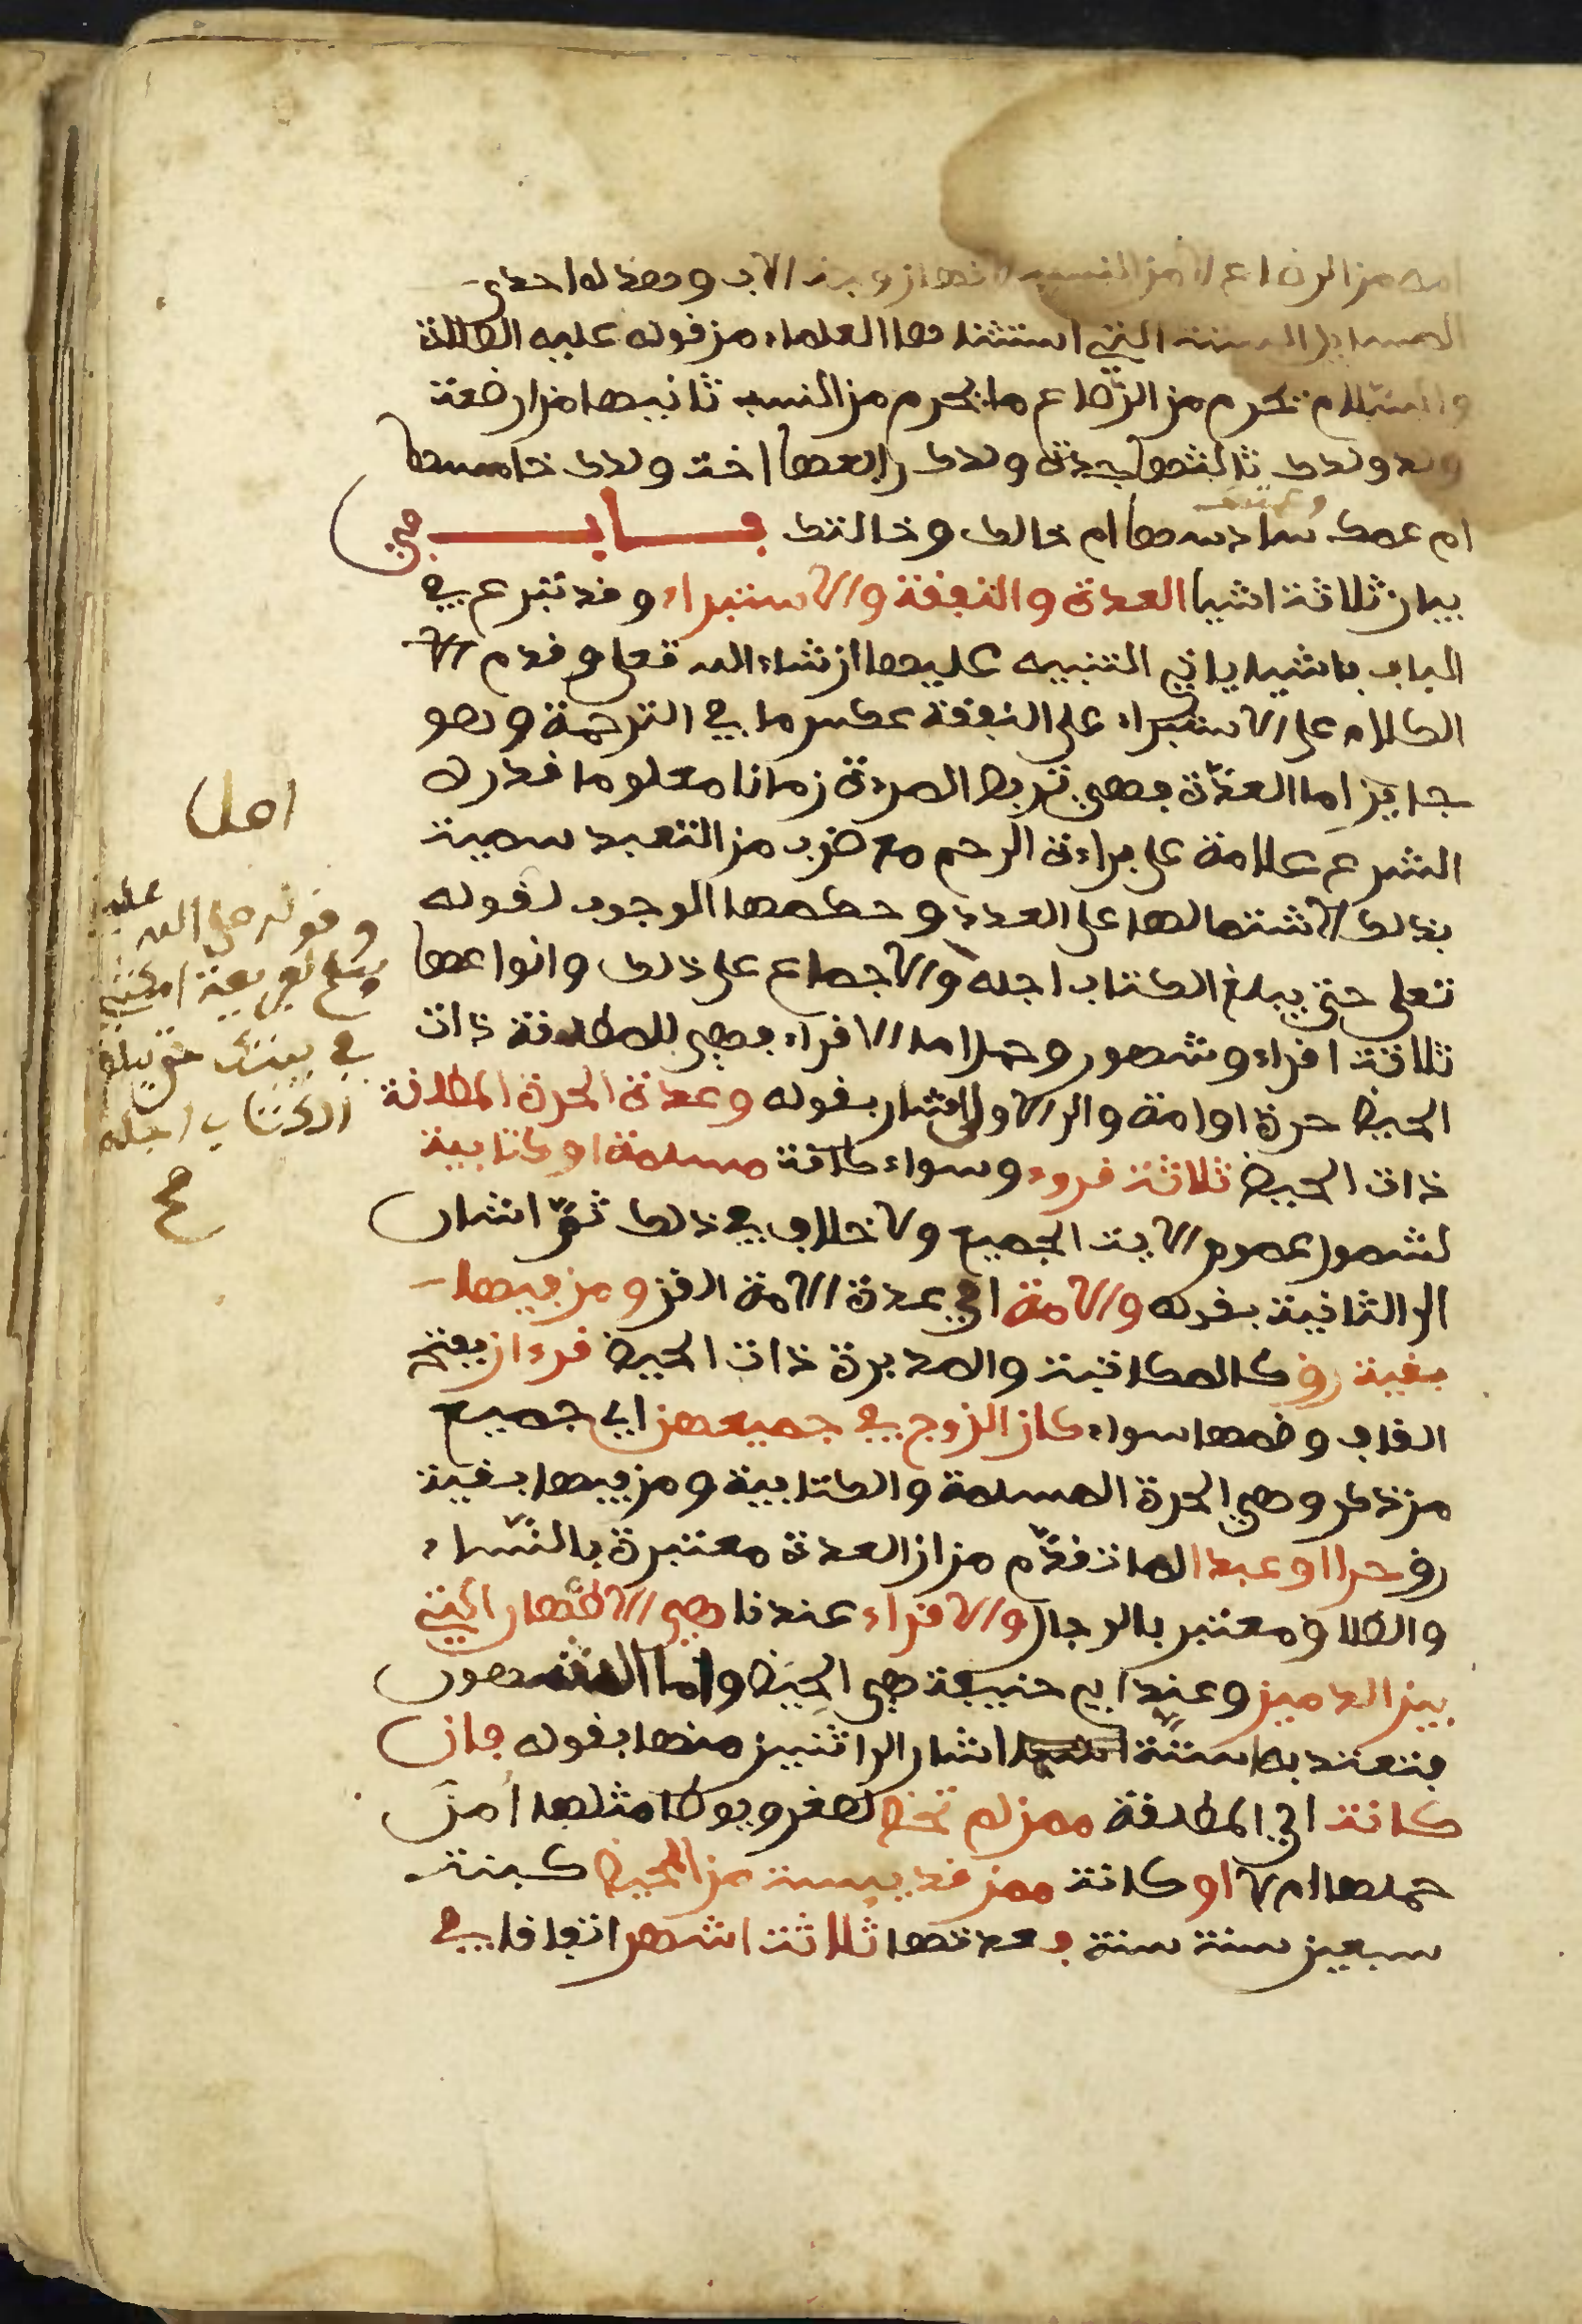 امه من الرضاع لا من النسب لانها زوجة الاب وهذه احدى
المسايل الستة التي استثناها العلماء من قوله عليه الصلاة
والسلام يحرم من الرضاع ما يحرم من النسب ثانيها من ارضعت
ولد ولدك ثالثها جدة ولدك رابعها اخت ولدك خامسها
ام عمك وعمتك سادسها ام خالك وخالتك بــاب في
بيان ثلاثة اشيا العدة والنفقة والاستبراء وقد تبرع في
الباب باشياء ياتي التنبيه عليها ان شاء الله تعلى وقدم
الكلام على الاستبراء على النفقة عكس ما في الترجمة وهو
جايز اما العدّة فهي تربص المرءة زمانا معلوما قدره
الشرع علامة على براءة الرحم مع ضرب من التعبد سميت
بذلك لاشتمالها على العدد وحكمها الوجوب لقوله
تعلى حتى يبلغ الكتاب اجله والاجماع على ذلك وانواعها
ثلاثة اقراء وشهور وحمل اما الاقراء فهي للمطلقة ذات
الحيض حرة او امة والى الاولى اشار بقوله وعدة الحرة المطلقة
ذات الحيض ثلاثة قروء وسواء كانت مسلمة او كتابية
لشمول عموم الاية الجميع ولا خلاف في ذلك ثمّ اشار
الى الثانية بقوله والامة اي عدة الامة القن ومن فيها
بقية رق كالمكاتبة والمدبرة ذات الحيض قرءان بفتح
القاف وضمها سواء كان الزوج في جميعهن اي جميع
من ذكر وهي الحرة المسلمة والكتابية ومن فيها بقية
رق حرا او عبدا لما تقدّم من ان العدة معتبرة بالنّساء
والطلاق معتبر بالرجال والاقراء عندنا هي الاطهار التي
بين الدمين وعند ابي حنيفة هي الحيض واما الشهور
فتعتد بها ستّة اشار الى اثنين منها بقوله فان
كانت اي المطلقة ممن لم تحض لصغر ويوطا مثلها أمن
حملها ام لا او كانت ممن قد يئست من المحيض كبنت
سبعين سنة سنة فعدتها ثلاثة اشهر اتفاقا في
اصل
وقوله صلى الله عليه
وسلم لفريعة امكثي
في بيتك حتى يبلغ
الكتاب اجله
صح